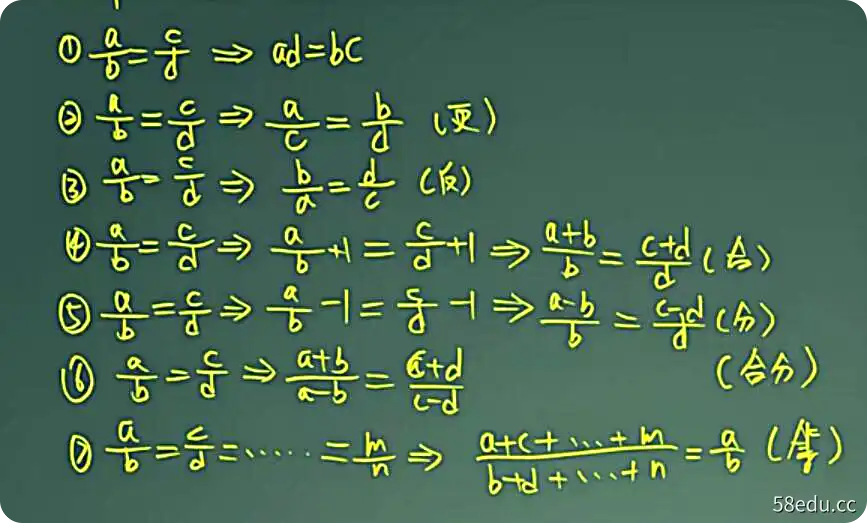 ① a/b = c/d ⇒ ad=bc
② a/b = c/d ⇒ a/c = b/d (更)
③ a/b = c/d ⇒ b/a = d/c (反)
④ a/b = c/d ⇒ a/b +1 = c/d +1 ⇒ (a+b)/b = (c+d)/d (合)
⑤ a/b = c/d ⇒ a/b -1 = c/d -1 ⇒ (a-b)/b = (c-d)/d (分)
⑥ a/b = c/d ⇒ (a+b)/(a-b) = (c+d)/(c-d) (合分)
⑦ a/b = c/d = ⋯⋯ = m/n ⇒ (a+c+⋯+m)/(b+d+⋯+n) = a/b
58edu.cc